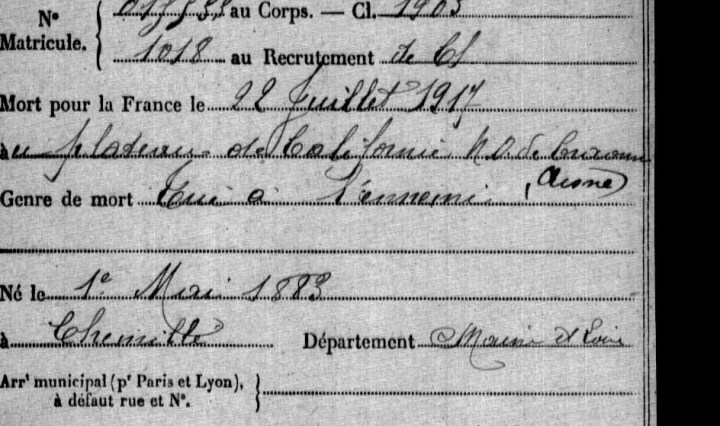 Nº Matricule. au Corps. — Cl. 1903
1018 au Recrutement de
Mort pour la France le 22 Juillet 1917
au plateau de Californie N.O. de Craonne
(Aisne)
Genre de mort Tué à l'ennemi
Né le 1e Mai 1883
à Chemillé Département Maine et Loire
Arrt municipal (pr Paris et Lyon),
à défaut rue et Nº.